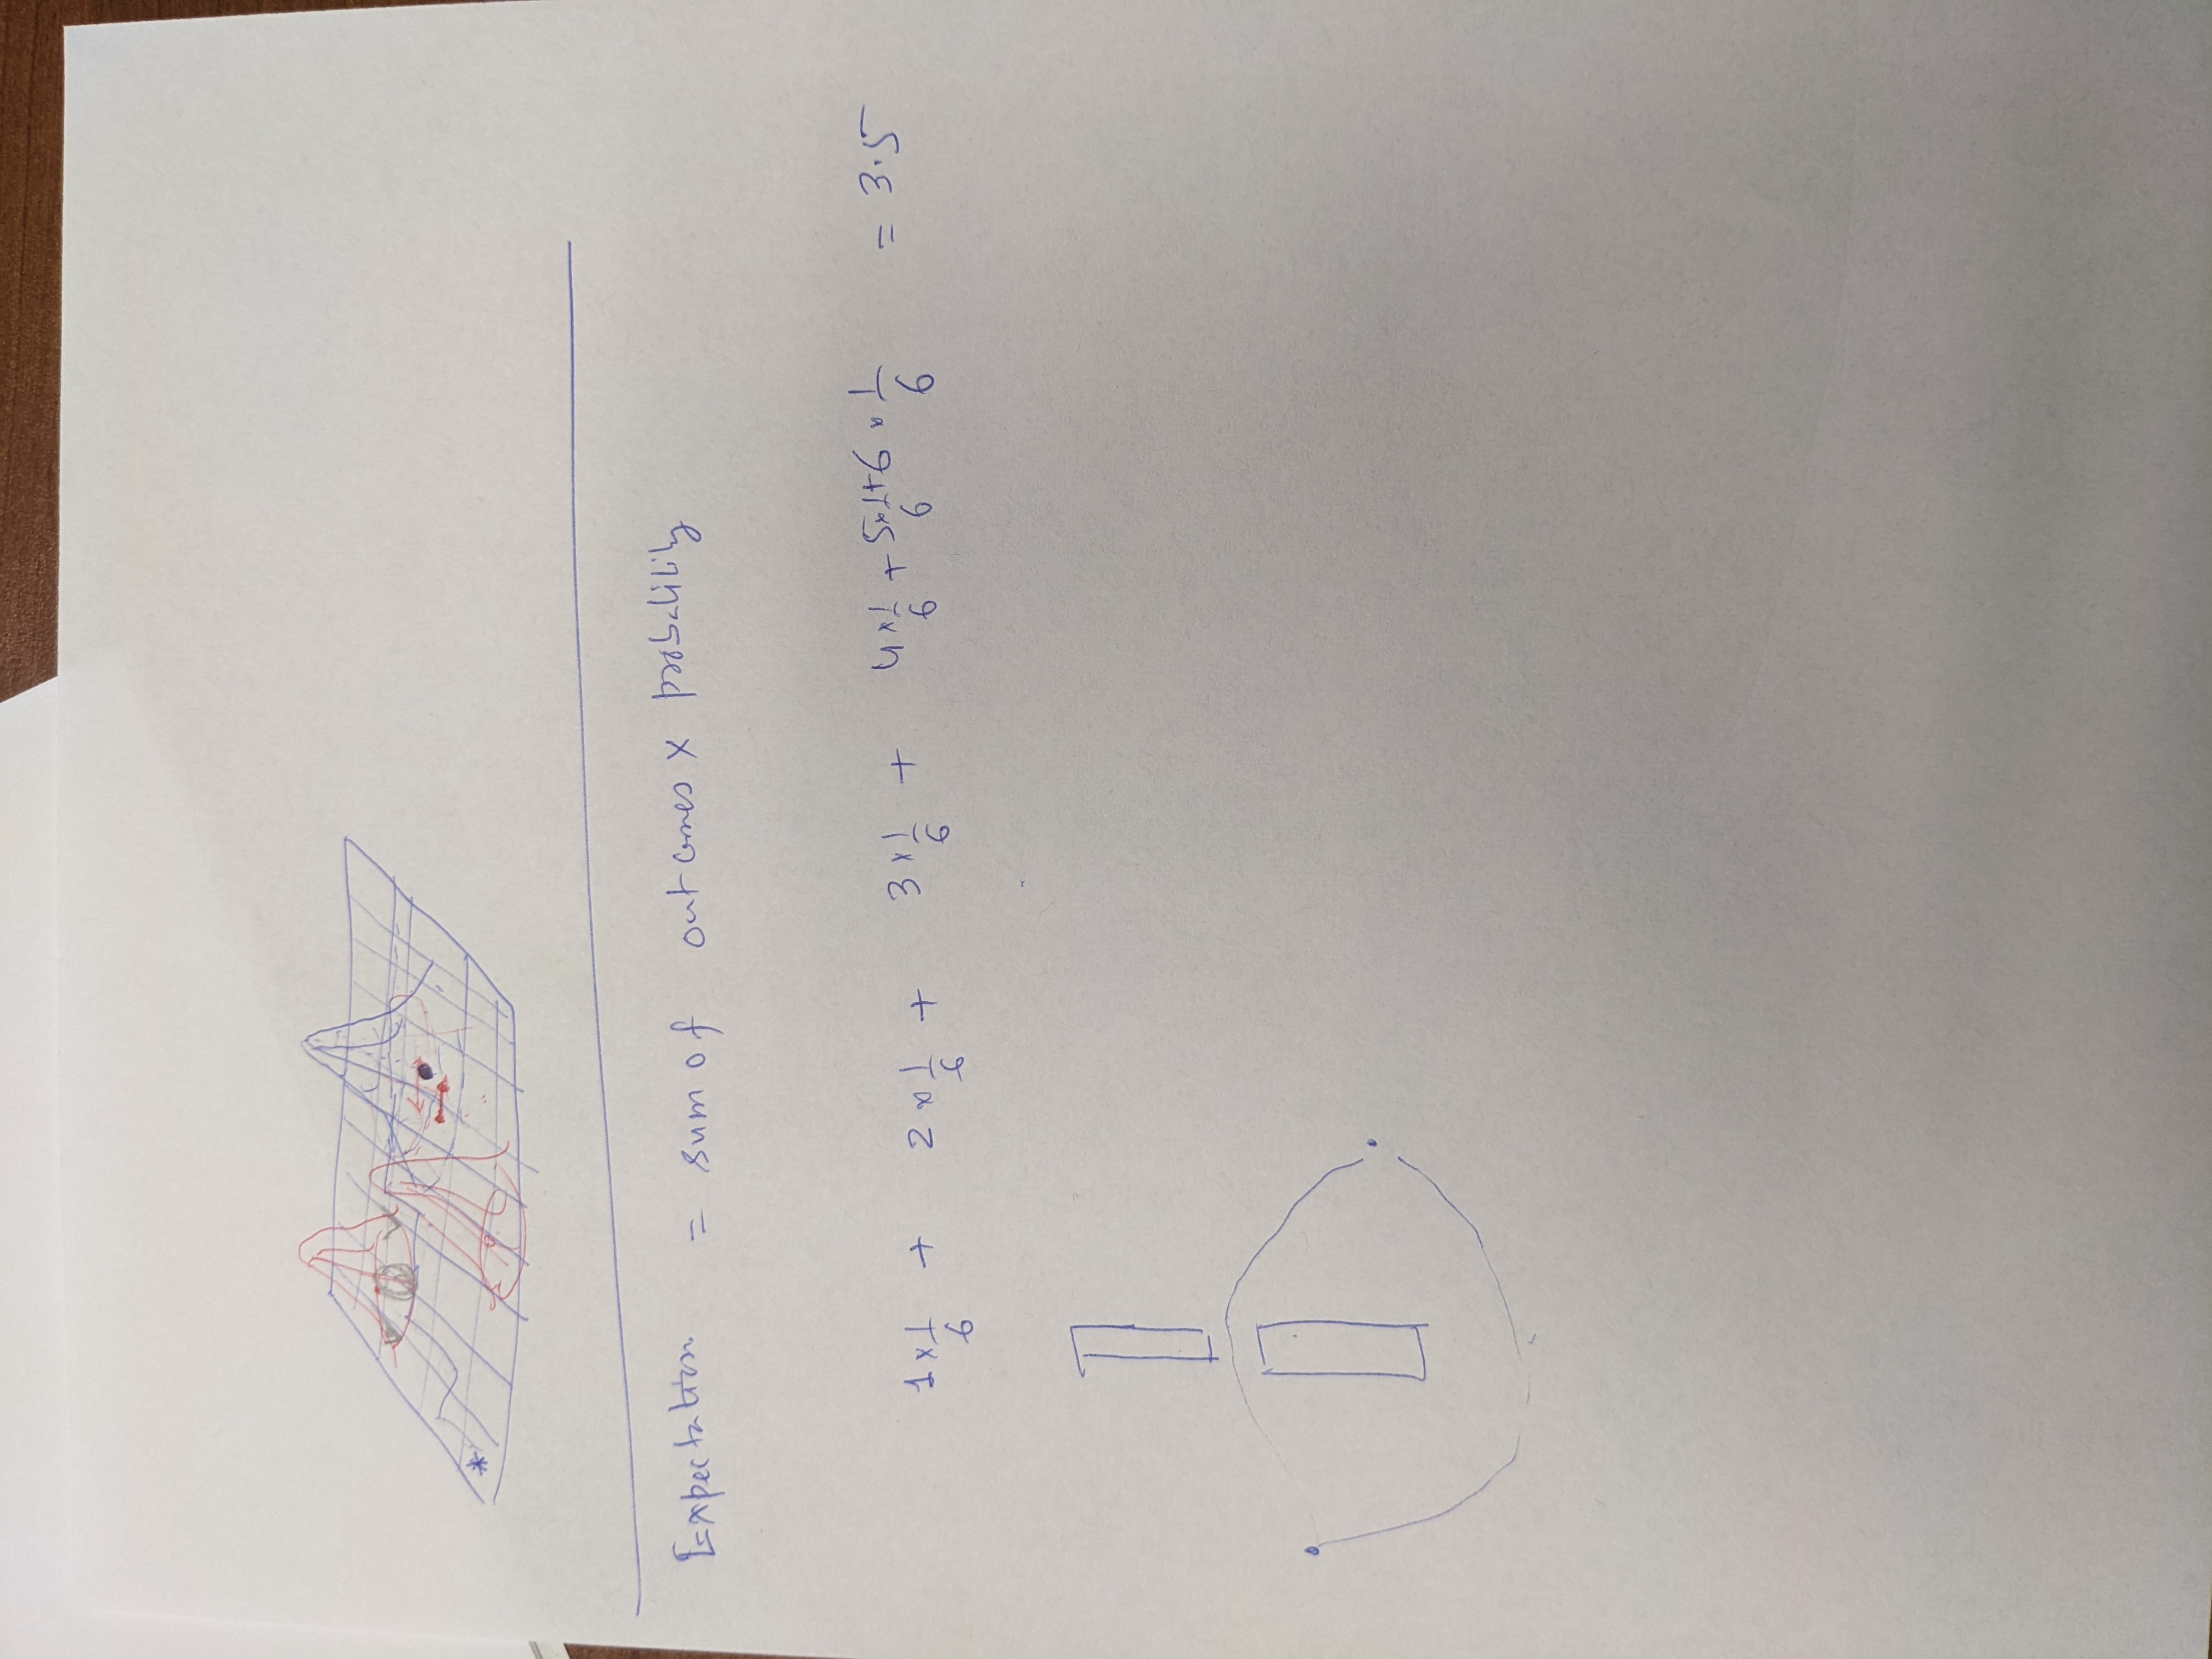 *
Expectation = sum of outcomes x probability
1 x 1/6 + 2 x 1/6 + 3 x 1/6 + 4 x 1/6 + 5 x 1/6 + 6 x 1/6 = 3.5